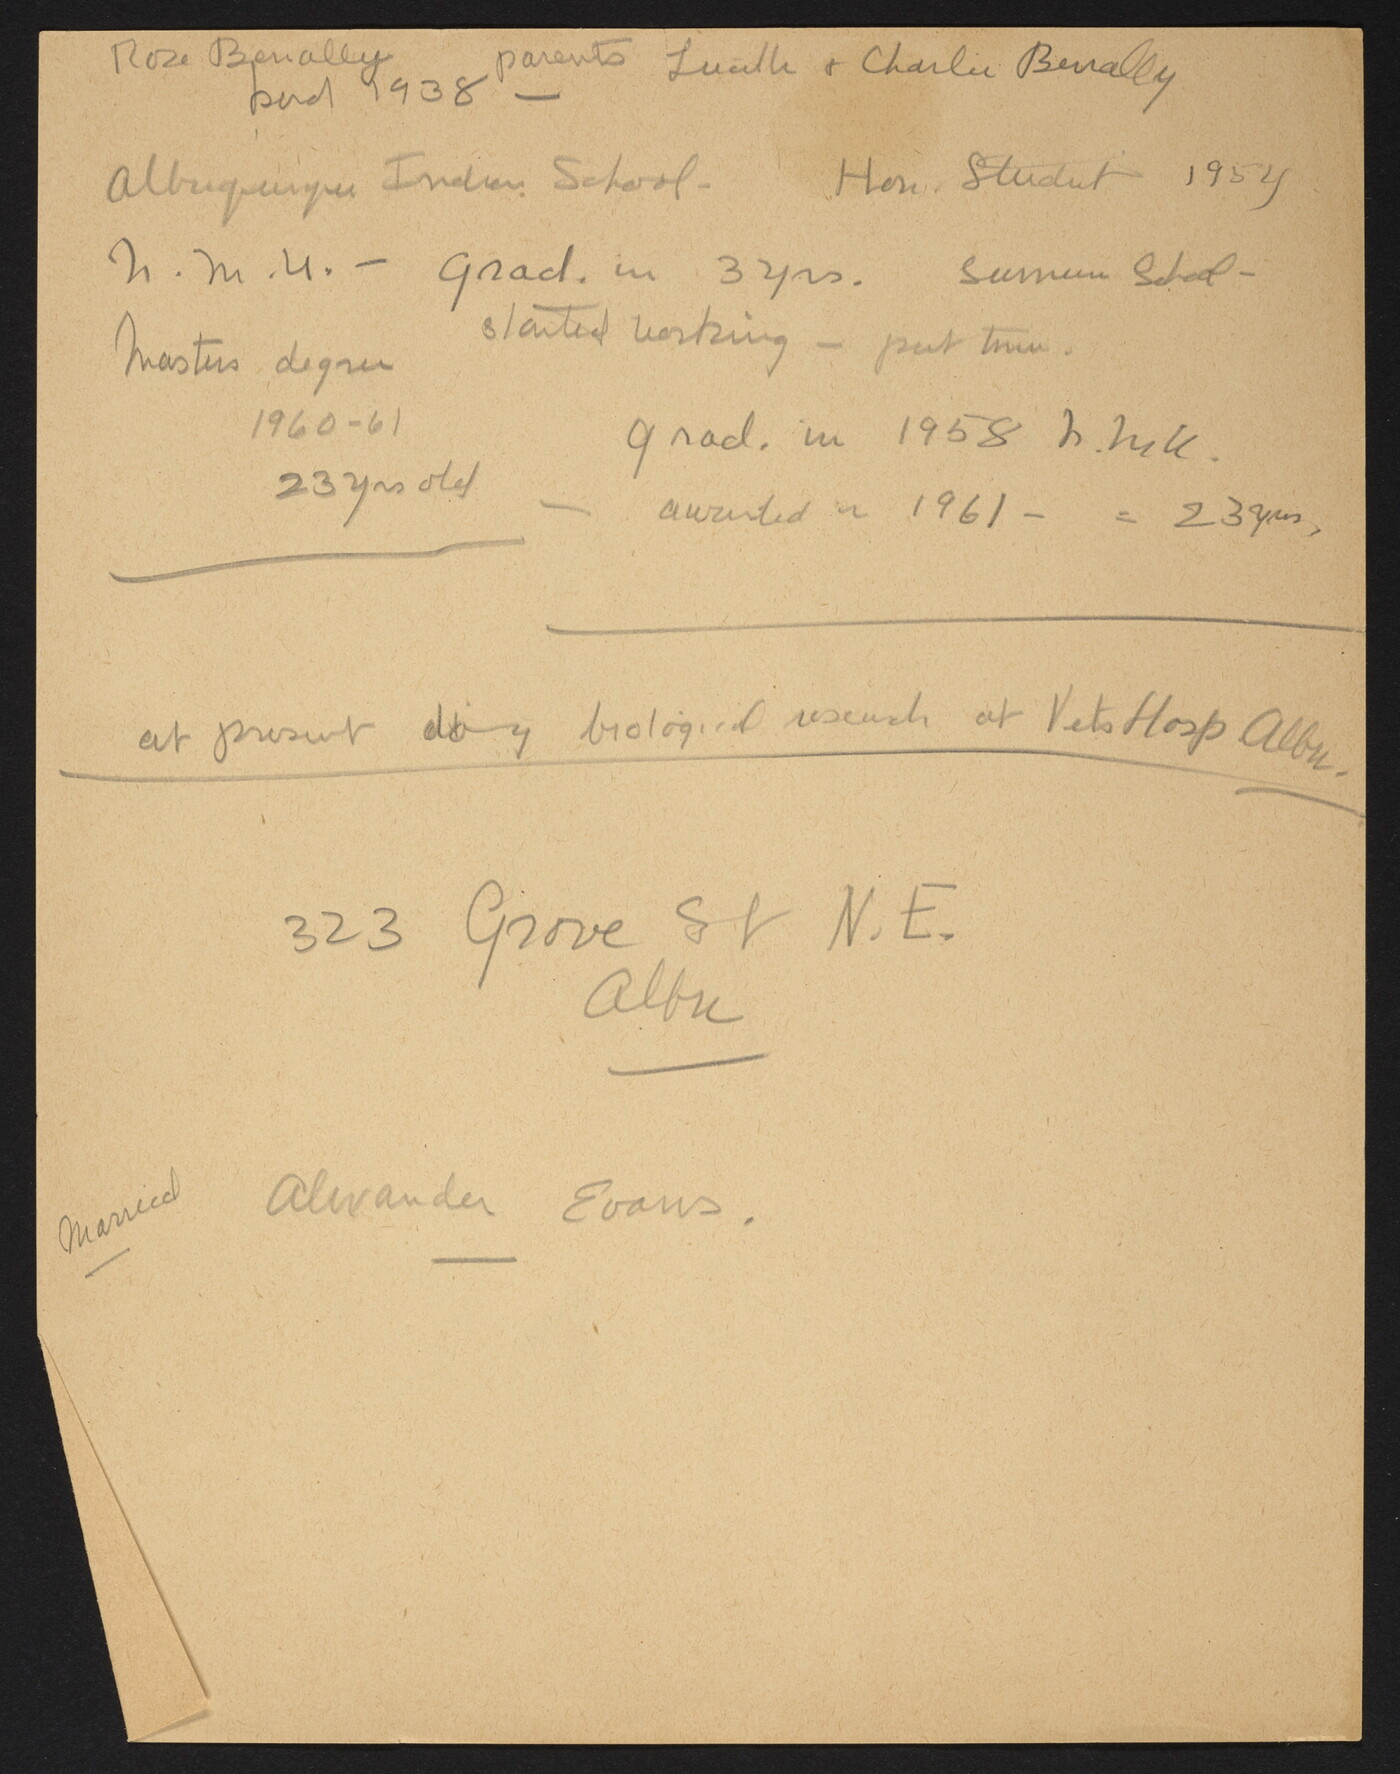 Rose Benally parents Lucille & Charlie Benally
1938 —
Albuquerque Indian School - Hon. Student 1954
N.M.U. - grad. in 3 yrs. Summer School -
started working - part time.
Masters degree
1960-61
grad. in 1958 N.M.U.
23 yrs old
— awarded in 1961 - = 23 yrs,
at present doing biological research at Vets Hosp Albu.
323 Grove St N.E.
Albu
Married Alexander Evans.